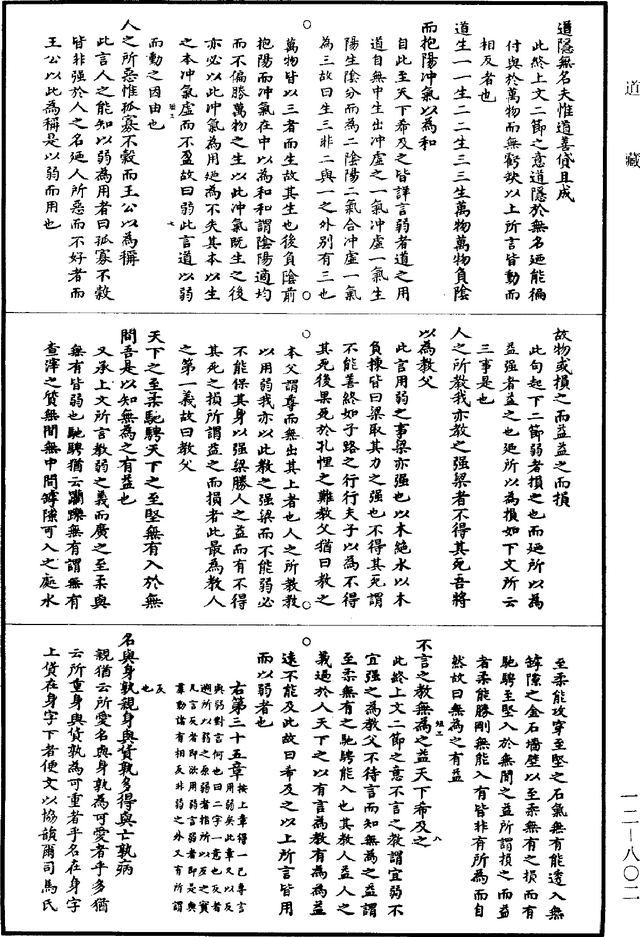 道藏
道隱無名夫惟道善貸且成
此終上文二節之意道隱於無名廼能徧
付與於萬物而無虧缺以上所言皆動而
相反者也
道生一一生二二生三三生萬物萬物負陰
而抱陽沖氣以為和
自此至天下希及之皆詳言弱者道之用
道自無中生出沖虛之一氣沖虛一氣生
陽生陰分而為二陰陽二氣合沖虛一氣
為三故曰生三非二與一之外別有三也
萬物皆以三者而生故其生也後負陰前
抱陽而沖氣在中以為和和謂陰陽適均
而不偏勝萬物之生以此沖氣既生之後
亦必以此沖氣為用廼為不失其本以生
之本沖氣虛而不盈故曰弱此言道以弱
而動之因由也
人之所惡惟孤寡不穀而王公以為稱
此言人之能知以弱為用者曰孤寡不穀
皆非强於人之名廼人所惡而不好者而
王公以此為稱是以弱而用也
故物或損之而益益之而損
此句起下二節弱者損之也而廼所以為
益强者益之也廼所以為損如下文所云
三事是也
人之所教我亦教之强梁者不得其死吾將
以為教父
此言用弱之事梁亦强也以木絶水以木
負揀皆曰梁取其力之强也不得其死謂
不能善終如子路之行行夫子以為不得
其死後果死於孔悝之難教父猶曰教之
本父謂尊而無出其上者也人之所教教
以用弱我亦以此教之强梁而不能弱必
不能保其身以强梁勝人之益而有不得
其死之損所謂益之而損者此最為教人
之第一義故曰教父
天下之至柔馳騁天下之至堅無有入於無
間吾是以知無為之有益也
又承上文所言教弱之義而廣之至柔與
無有皆弱也馳騁猶云躪躒無有謂無有
查滓之質無間無中間罅隙可入之處水
至柔能攻穿至堅之石氣無有能透入無
罅隙之金石墻壁以至柔無有之損而有
馳騁至堅入於無間之益所謂損之而益
者柔能勝剛無能入有皆非有所為而自
然故曰無為之有益
不言之教無為之益天下希及之
此終上文二節之意不言之教謂宜弱不
宜强之為教父不待言而知無為之益謂
至柔無有之馳騁能入也其教人益人之
義過於人天下之以有言為教有為為益
遠不能及此故曰希及之以上所言皆用
而以弱者也
右第三十五章按上章得一已專言
用弱矣此章又以反
與弱對言何也曰二字一意也反者
廼所以弱之原弱者指所以反之實
凡言反者即欲用弱言弱者即是與
羣動諸有相反非弱之外又有所謂
反
也
名與身孰親身與貨孰多得與亡孰病
親猶云所愛名與身孰為可愛者乎多猶
云所重身與貨孰為可重者乎名在身字
上貨在身字下者便文以協韻爾司馬氏
一二—八〇二